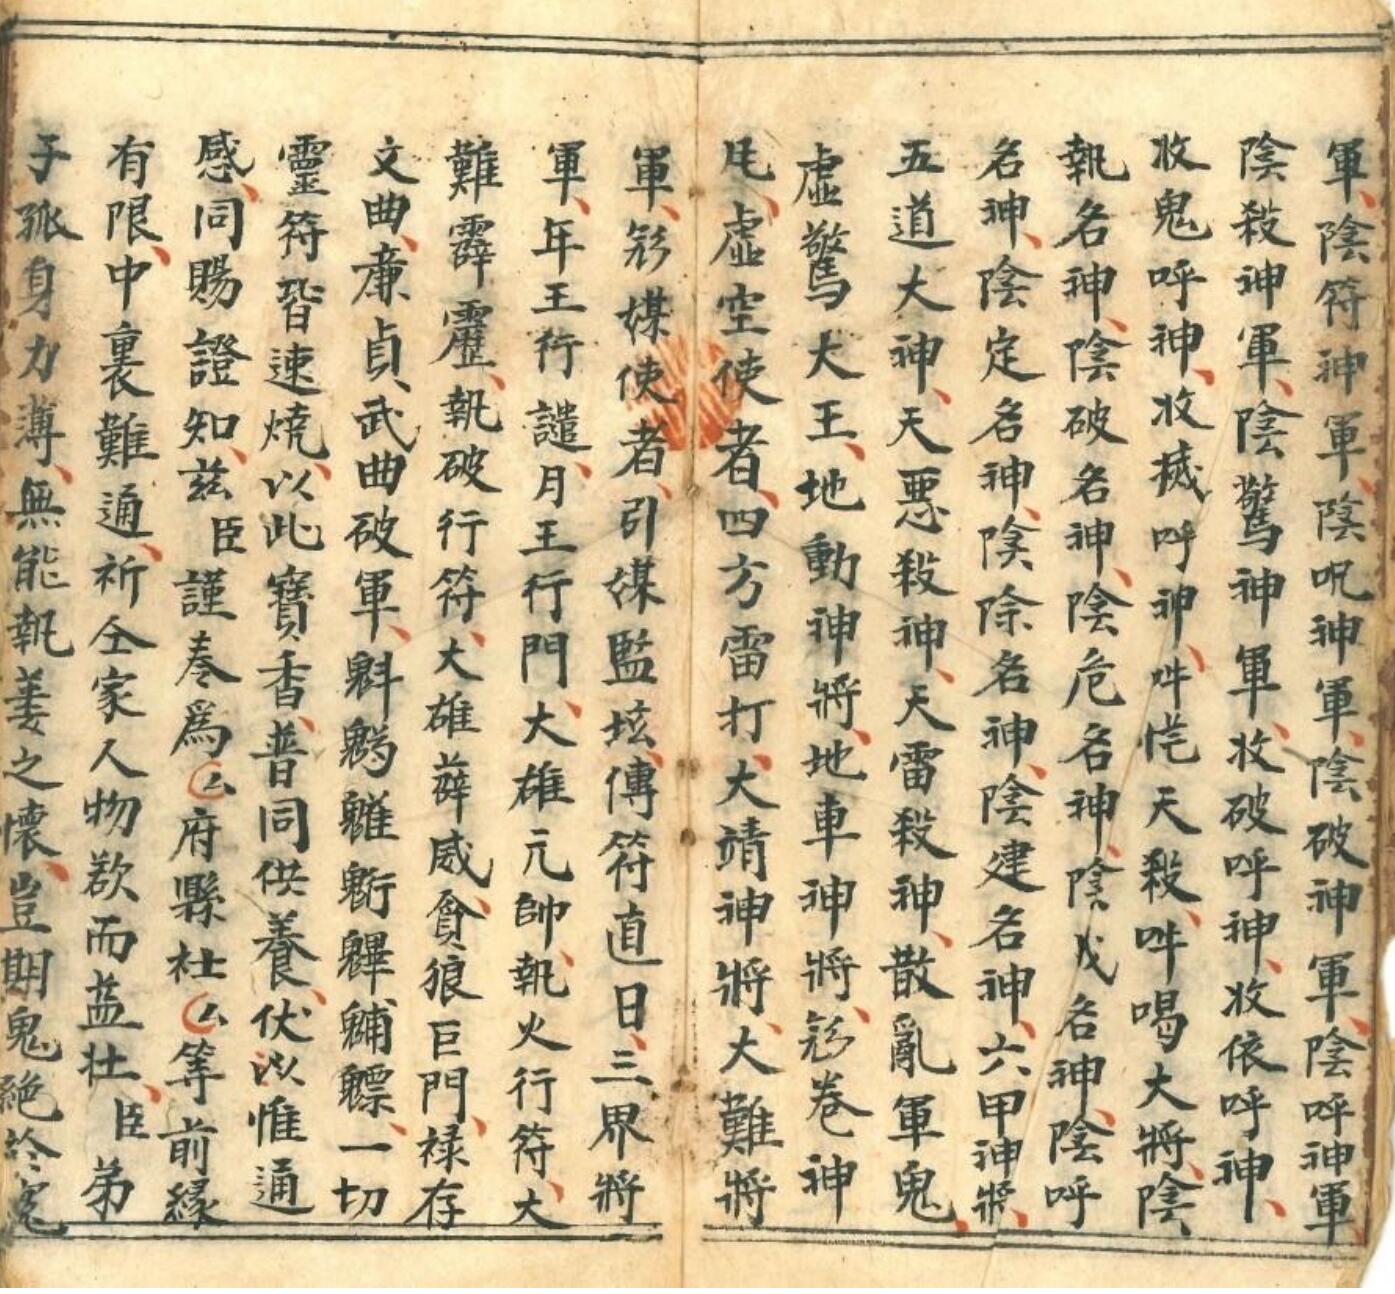 軍、陰符神軍、陰呪神軍、陰破神軍、陰呼神軍、
陰殺神軍、陰驚神軍、收破呼神、收依呼神、
收鬼呼神、收撼呼神、吽恾天殺、吽喝大將、陰
執名神、陰破名神、陰危名神、陰戊名神、陰呼
名神、陰定名神、陰除名神、陰建名神、六甲神將、
五道大神、天惡殺神、天雷殺神、散亂軍鬼、
虛驚大王、地動神將、地車神將、彩卷神
虛空使者、四方雷打、大靖神將、大難將
軍、彩媒使者、引媒監垓、傳符直日、三界將
軍、年王行譴、月王行門、大雄元帥、執火行符、大
難霹靂、執破行符、大雄薜威、貪狼巨門、禄存
文曲、廉貞、武曲破軍、魁𩲃魓䰢魓魒、一切
靈符皆速燒、以此寶香、普同供養、伏以惟通
感、同賜證知、兹 臣謹奏爲厶府縣社厶等前緣
有限、中裏難通、祈仝家人物歆而益壯、臣 弟
子孤身力薄、無能執妻之懷、豈期鬼絶於冤